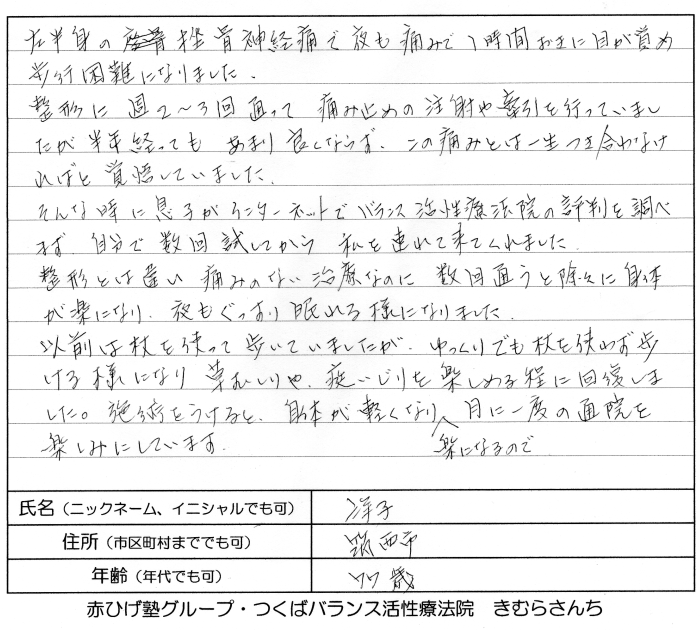 左半身の坐骨神経痛で夜も痛みで1時間おきに目が覚め
歩行困難になりました。
整形に週2~3回通って痛み止めの注射や牽引を行っていまし
たが半年経ってもあまり良くならず、この痛みとは一生つき合わなけ
ればと覚悟していました。
そんな時に息子がインターネットでバランス活性療法院の評判を調べ
まず、自分で数回試してから私を連れて来てくれました。
整形とは違い痛みのない治療なのに数回通うと除々に身体
が楽になり、夜もぐっすり眠れる様になりました。
以前は杖を使って歩いていましたが、ゆっくりでも杖を使わず歩
ける様になり草むしりや、庭いじりを楽しめる程に回復しま
した。施術をうけると、身体が軽くなり、月に一度の通院を
楽しみにしています。
楽になるので
氏名(ニックネーム、イニシャルでも可) 洋子
住所(市区町村まででも可) 筑西市
年齢(年代でも可) 77歳
赤ひげ塾グループ・つくばバランス活性療法院 きむらさんち